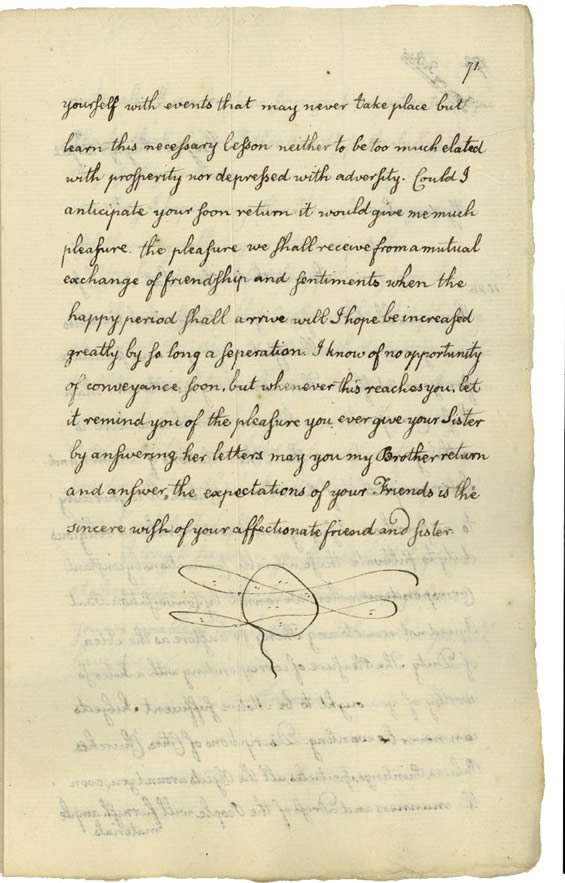 71.
yourself with events that may never take place but
learn this necessary lesson neither to be too much elated
with prosperity nor depressed with adversity. Could I
anticipate your soon return it would give me much
pleasure. the pleasure we shall receive from a mutual
exchange of friendship and sentiments when the
happy period shall arrive will I hope be increased
greatly by so long a seperation. I know of no opportunity
of conveyance soon, but whenever this reaches you, let
it remind you of the pleasure you ever give your Sister
by answering her letters may you my Brother return
and answer, the expectations of your Friends is the
sincere wish of your affectionate friend and sister.